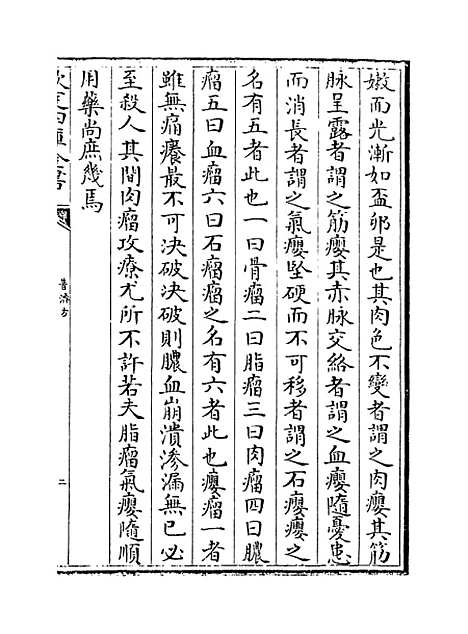 嫩而光漸如盃卵是也其肉色不變者謂之肉癭其筋
脉呈露者謂之筋癭其赤脉交絡者謂之血癭隨憂恚
而消長者謂之氣癭堅硬而不可移者謂之石癭癭之
名有五者此也一曰骨瘤二曰脂瘤三曰肉瘤四曰膿
瘤五曰血瘤六曰石瘤瘤之名有六者此也癭瘤二者
雖無痛癢最不可決破決破則膿血崩潰滲漏無已必
至殺人其間肉瘤攻療尤所不許若夫脂瘤氣癭隨順
用藥尚庶幾焉
欽定四庫全書
普濟方
二